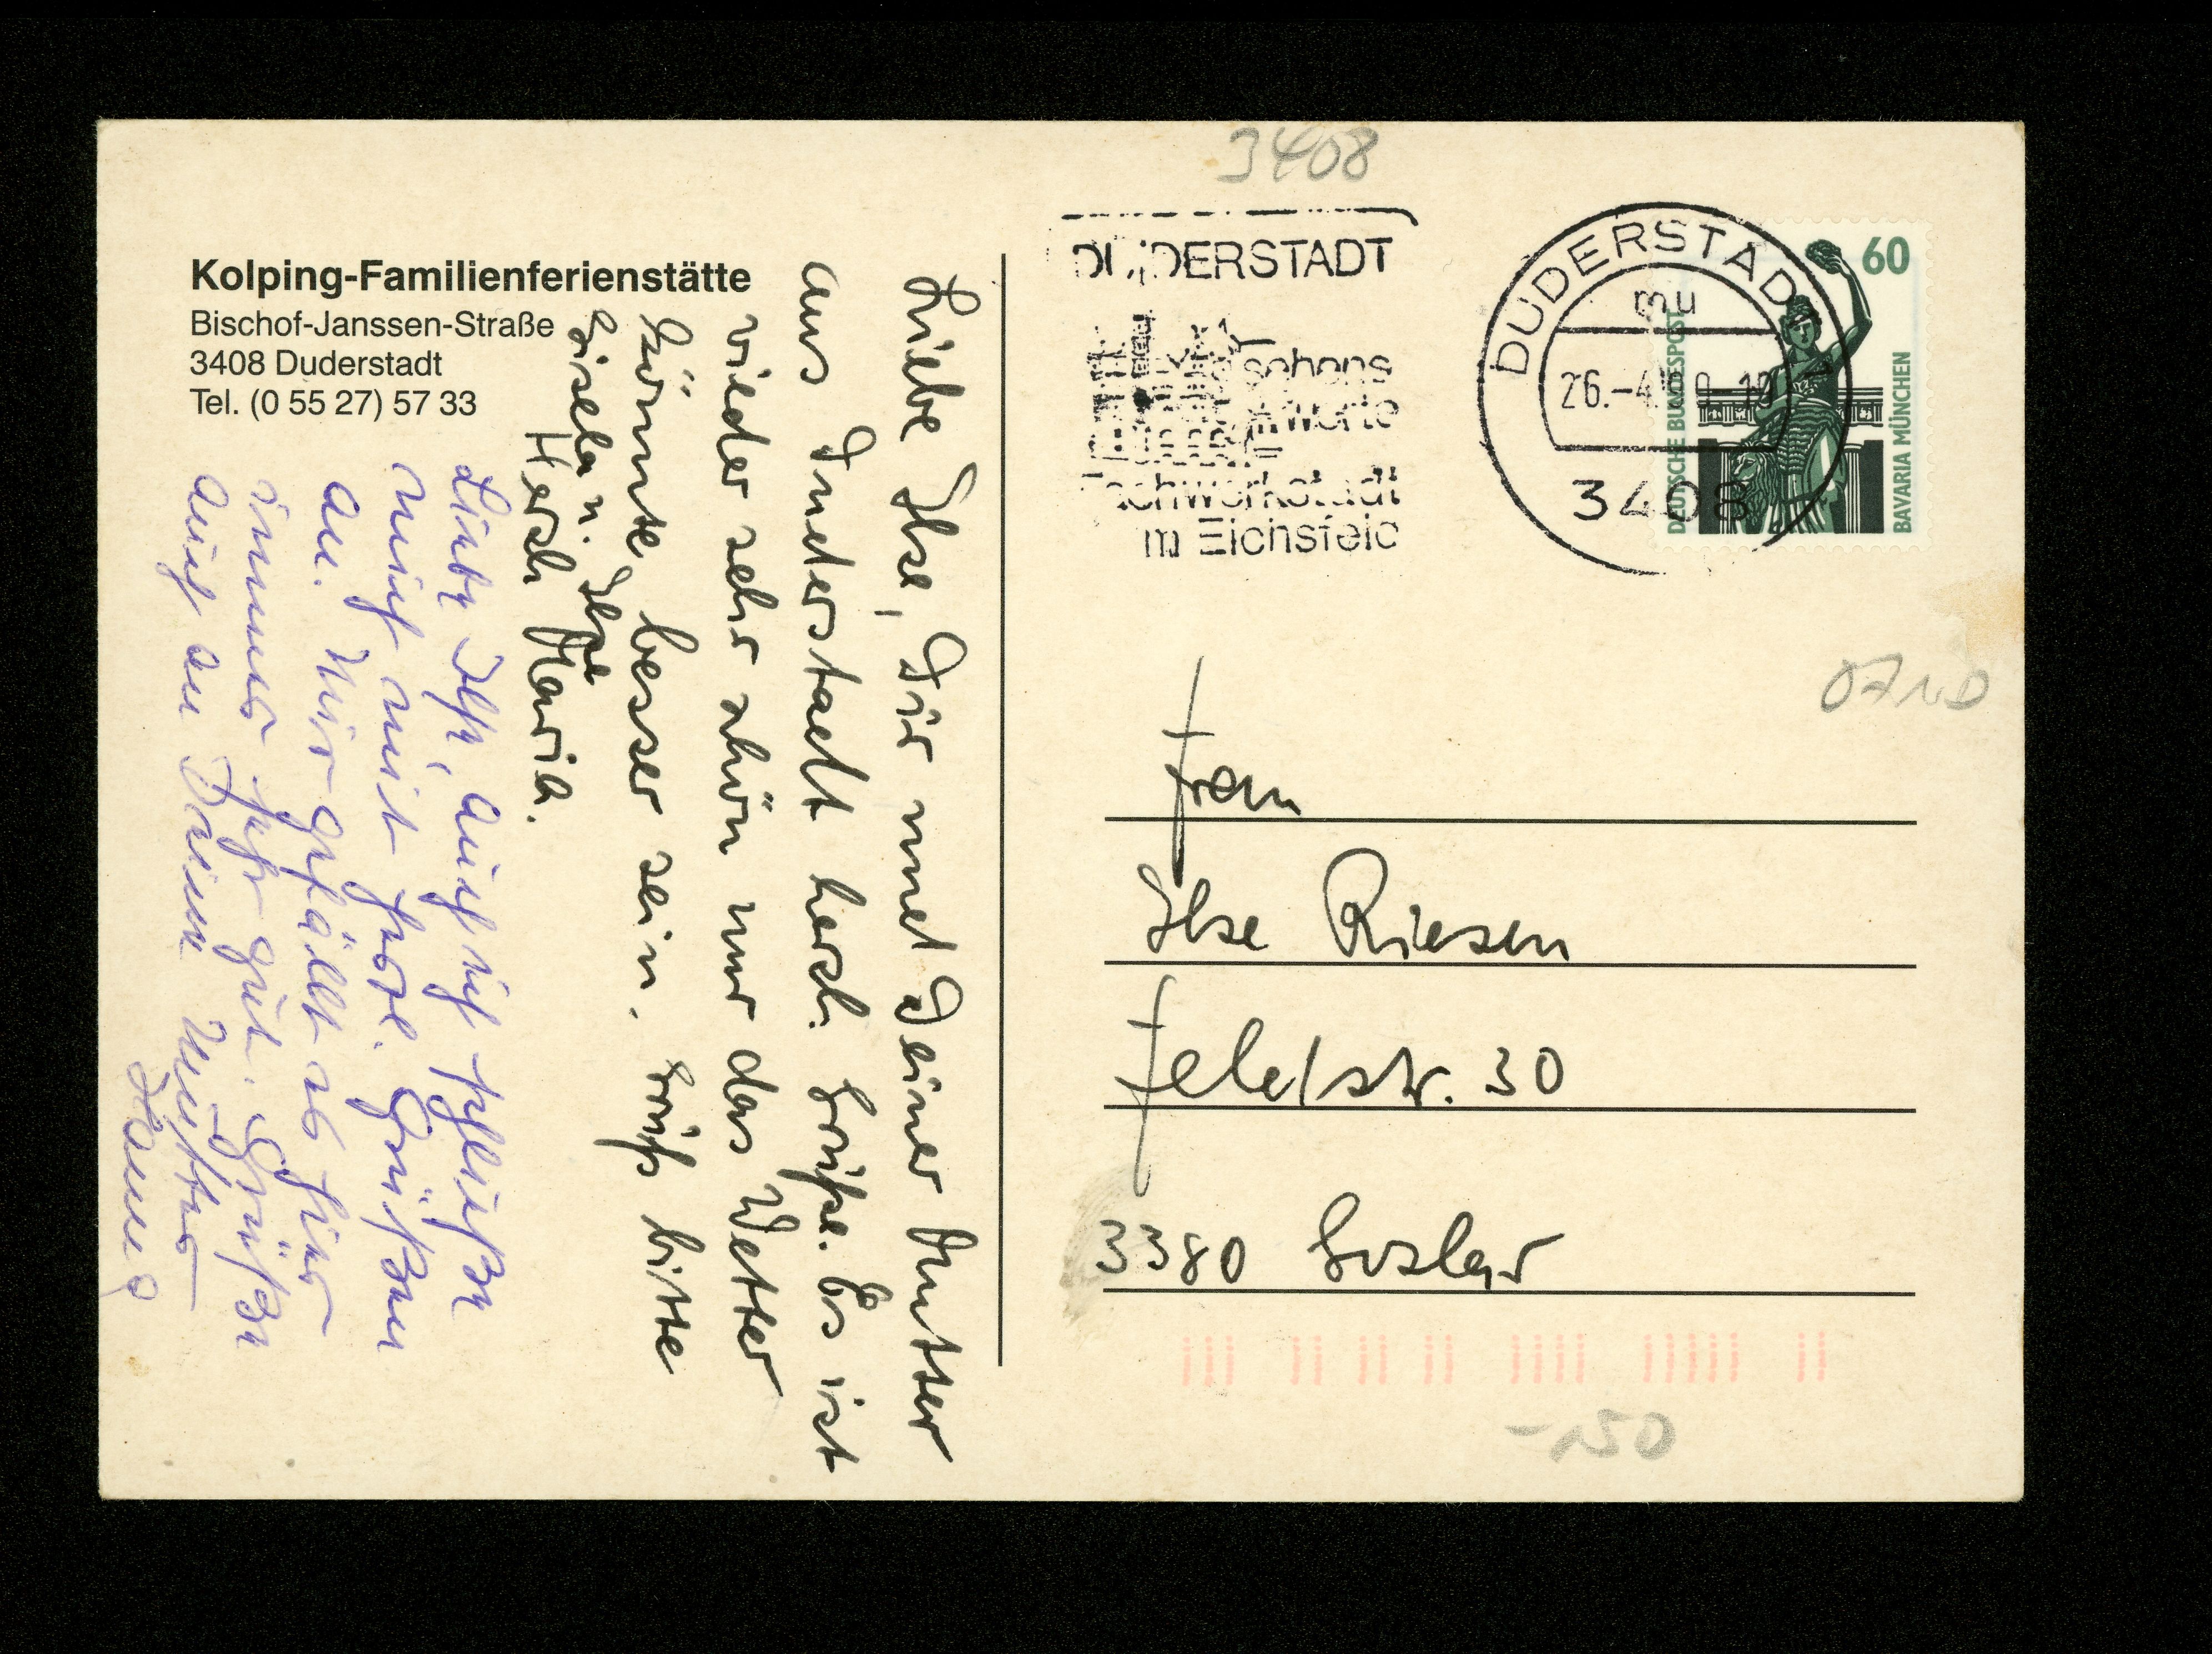 3408
Kolping-Familienferienstätte
Bischof-Janssen-Straße
3408 Duderstadt
Tel. (0 55 27) 57 33
Liebe Ilse, Dir und Deiner Mutter
aus Duderstadt herzl. Grüße. Es ist
wieder sehr schön nur das Wetter
könnte besser sein. Grüß bitte
Gisela u. Ilse
Herzl. Maria.
Liebe Ilse, auch ich schließe
mich mit
an. Mir gefällt es hier
immer sehr gut. Grüße
auch an Deine Mutter
DUDERSTADT
sehens
werte
Fachwerkstadt
im Eichsfeld
DUDERSTADT
mu
26.-4.
3408
60
DEUTSCHE BUNDESPOST
BAVARIA MÜNCHEN
Frau
Ilse Riesen
Feldstr. 30
3380 Goslar
-150